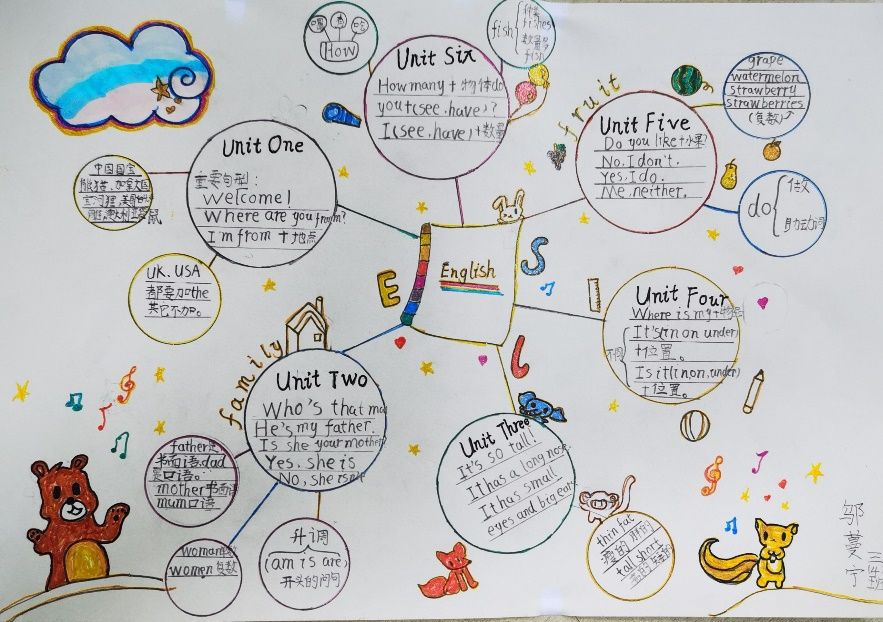 How
fish
种类
fishes
数量多
fish
Unit Six
How many + 物体 do
you + (see, have) ?
I (see, have) + 数量
fruit
Unit Five
Do you like + 水果?
No, I don't.
Yes, I do.
Me, neither.
grape
watermelon
strawberry
strawberries
(复数)
do
做
助动词
Unit One
重要句型:
Welcome!
Where are you from?
I'm from + 地点
中国国宝
熊猫、加拿大国
鼠
UK、USA
都要加the
其它不加。
English
E
S
L
Unit Four
Where is my +
It's (in on under)
+位置。
Is it (in on, under)
+位置。
family
Unit Two
Who's that
He's my father.
Is she your mother
Yes, she is
No, she isn't
father是
书面语,dad
是口语。
mother书面语
mum口语
woman
women 复数
升调
(am is are)
开头的问句
Unit Three
It's so tall!
It has a long nose.
It has small
eyes and big ears
thin fat
瘦的 胖的
tall short
邹蔓宁